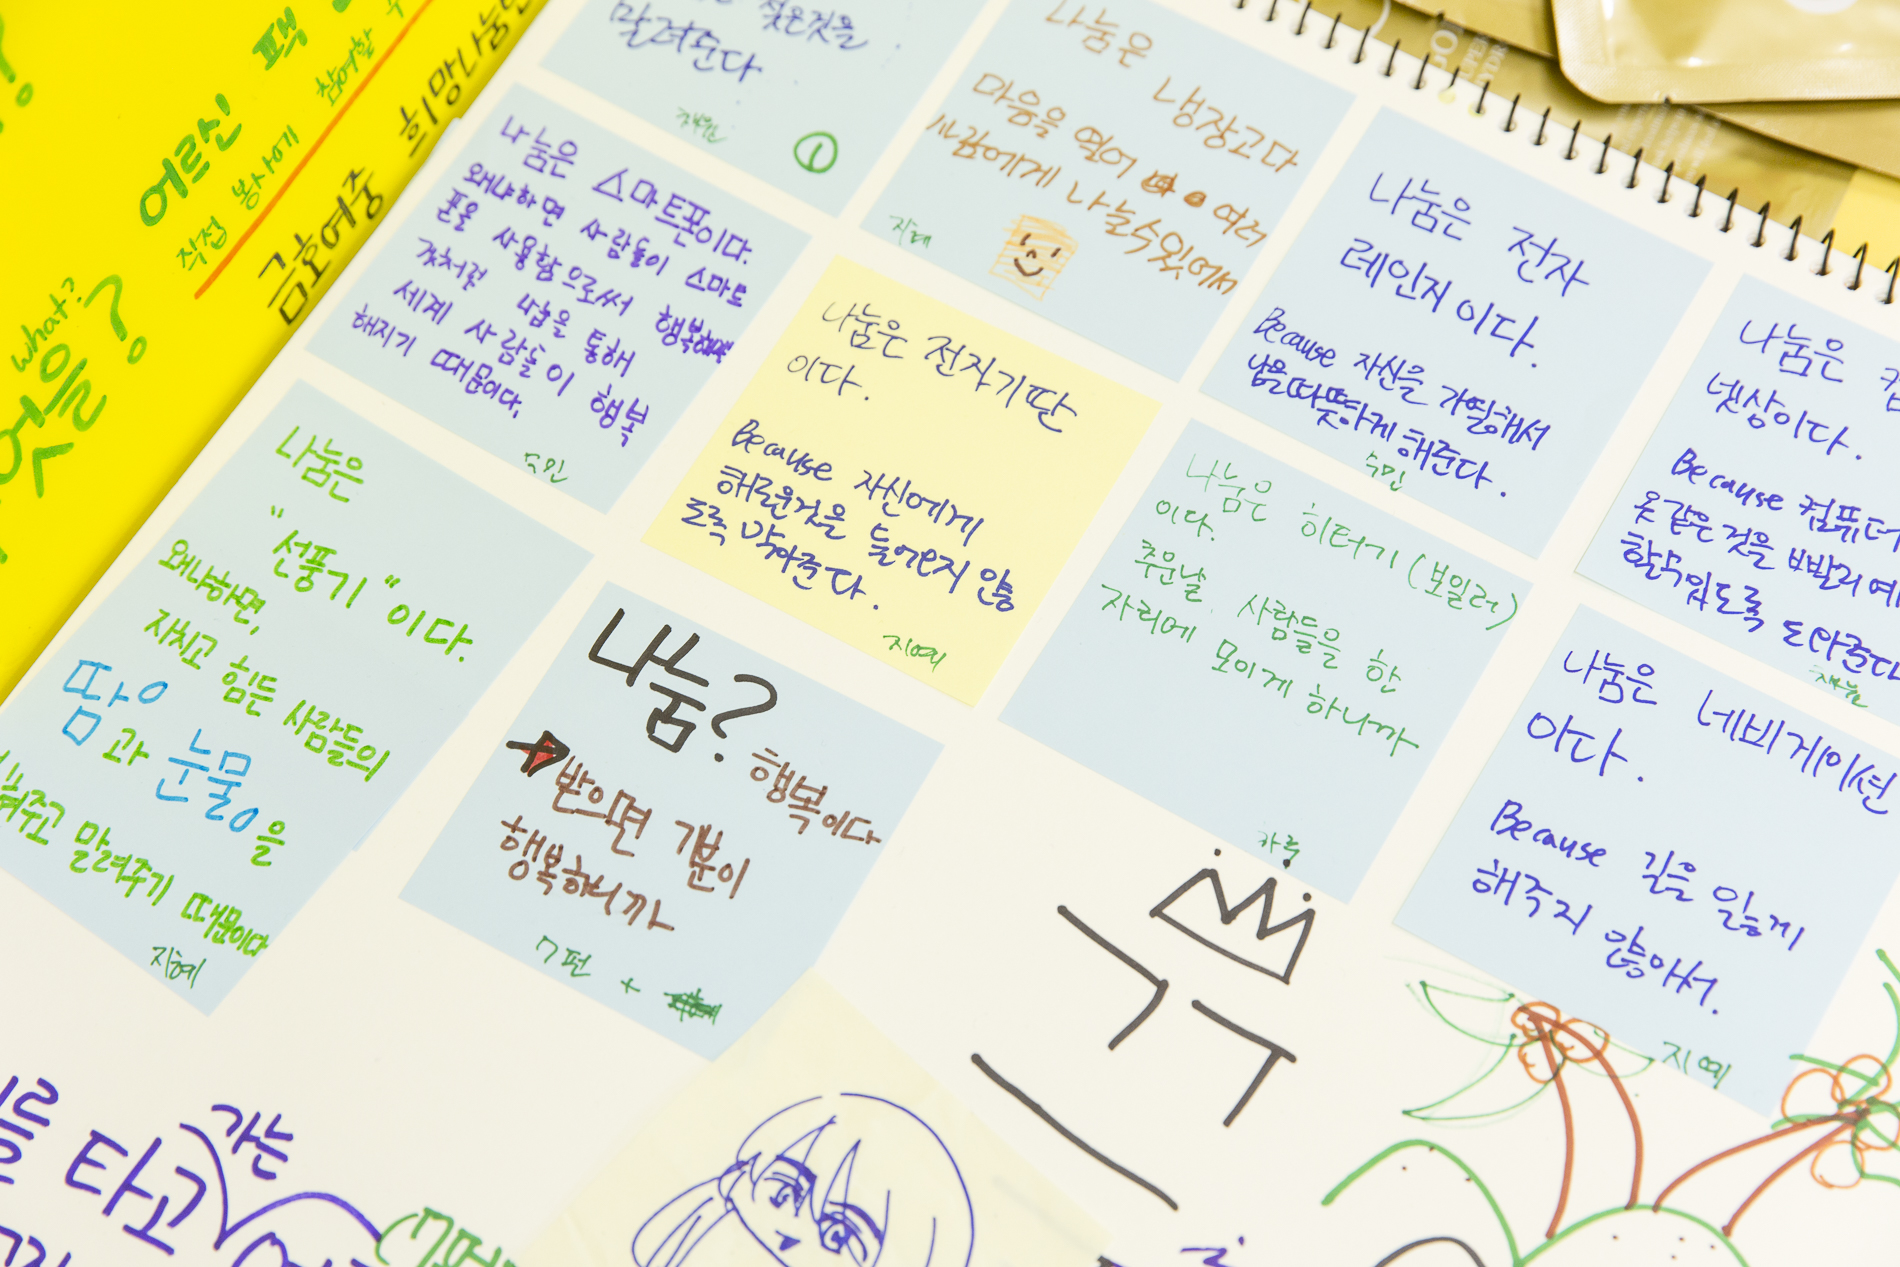 어르신
직접 봉사에
참여할
what?
금호여중 희망나눔
젖은것을
말려준다
재원
①
나눔은 냉장고다
마음을 열어 여러
사람에게 나눌수있에서
지혜
나눔은 스마트폰이다.
왜냐하면 사람들이 스마트
폰을 사용함으로써 행복해
것처럼 나눔을 통해
세계 사람들이 행복
해지기 때문이다.
나눔은 전자
레인지이다.
Because 자신을 가열해서
남을따뜻하게 해준다.
수민
나눔은 전자기판
이다.
Because 자신에게
해로운것을 들어오지 않
도록 막아준다.
지예
나눔은
넷상이다.
Because 컴퓨터
옷 같은 것을 빨리
할수있도록 도와준다
나눔은
"선풍기"이다.
왜냐하면,
지치고 힘든 사람들의
땀과 눈물을
말려주기 때문이다
지혜
나눔은 히터기 (보일러)
이다.
추운날 사람들을 한
자리에 모이게 하니까
나눔?
행복이다
받으면 기분이
행복하니까
나눔은 네비게이션
이다.
Because 길을 잃게
해주지 않아서.
지예
를 타고 가는